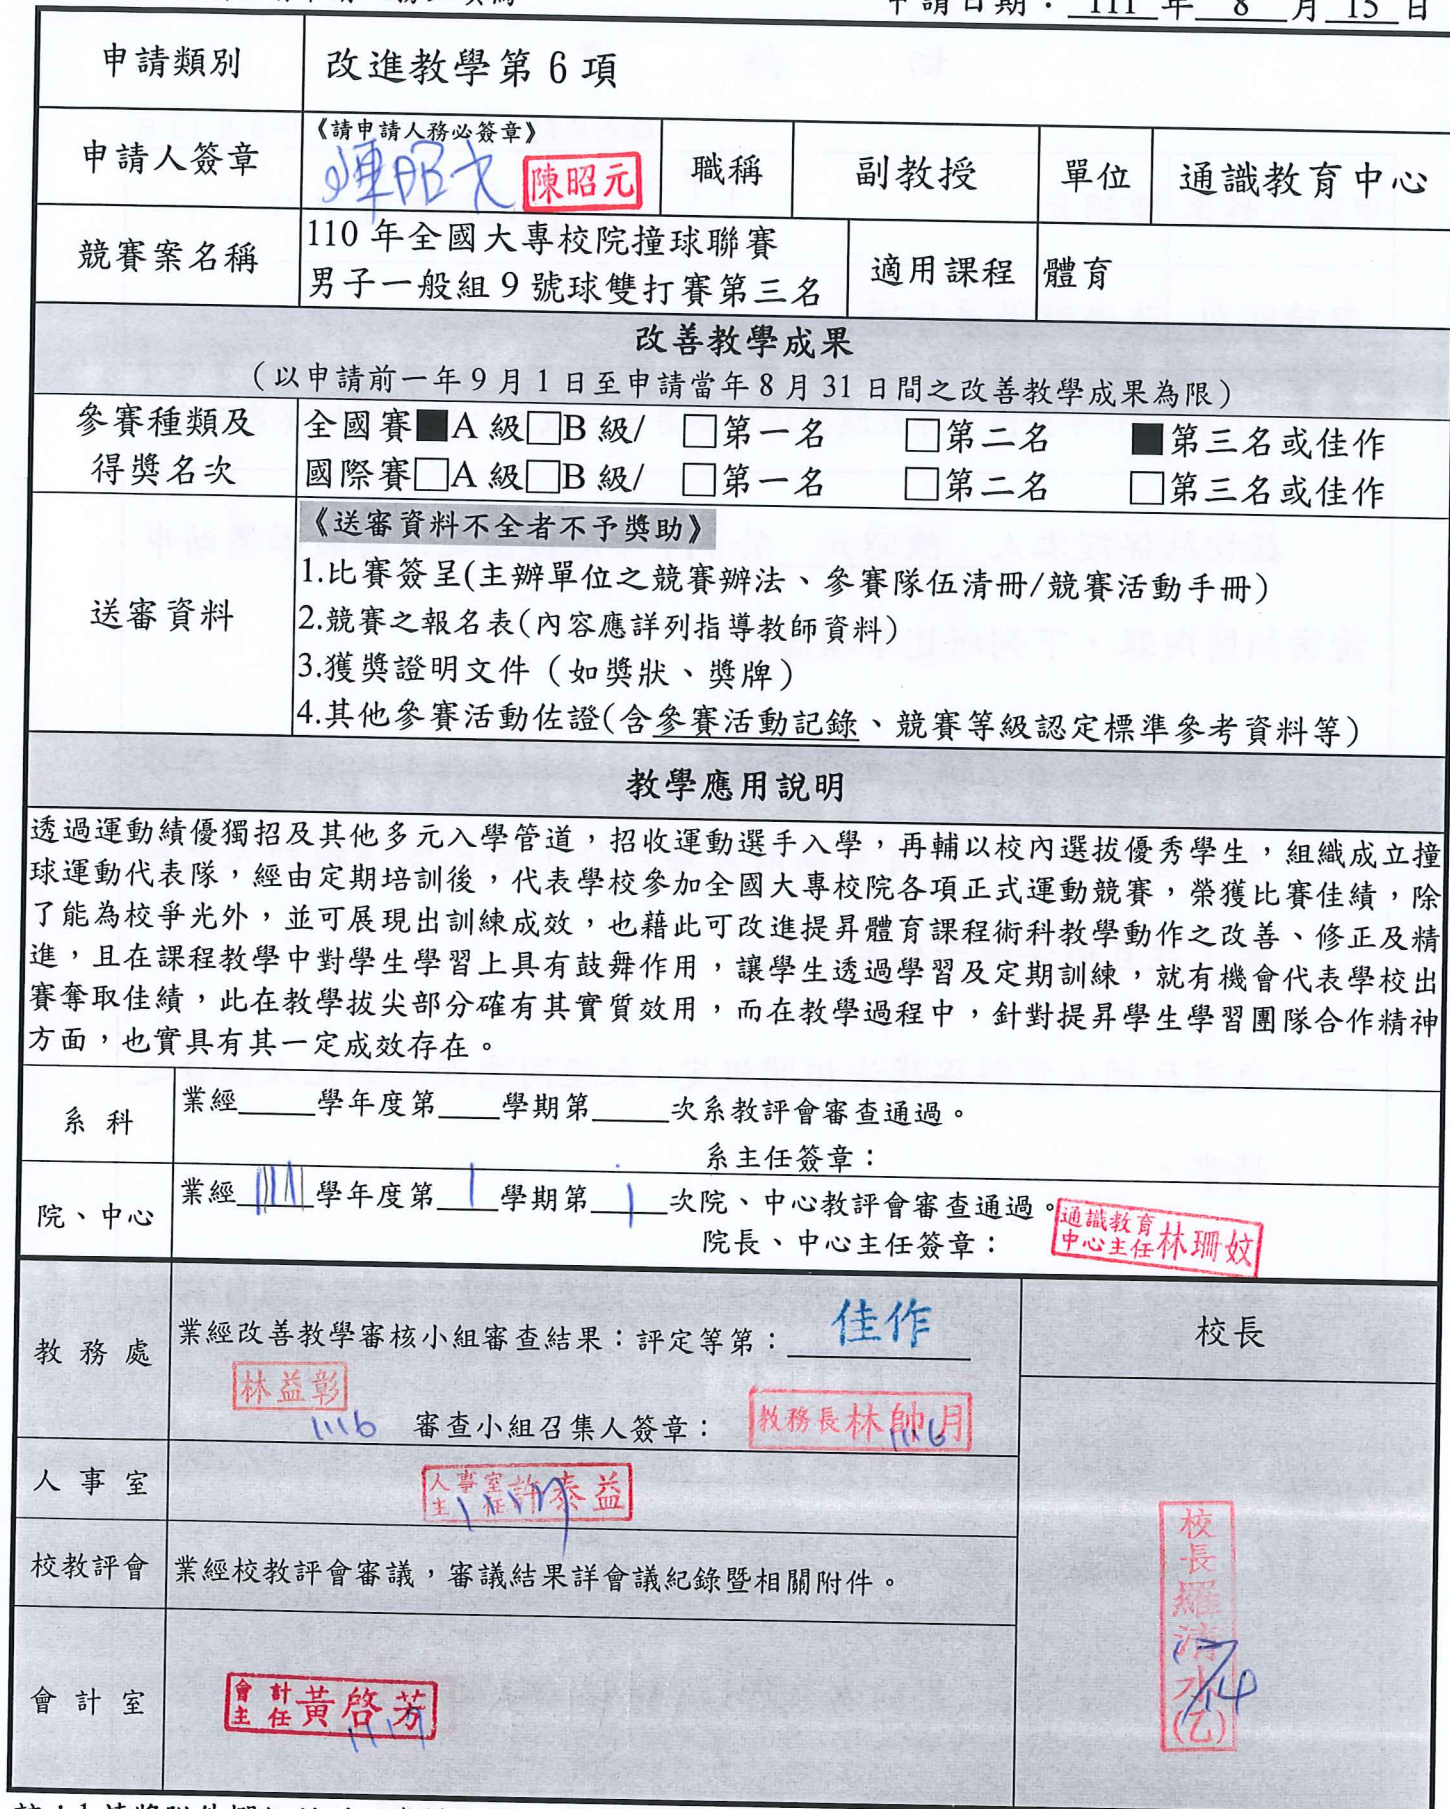 申請日期：111年 8 月 15 日
申請類別 改進教學第 6 項
申請人簽章 《請申請人務必簽章》 陳昭元 陳昭元 職稱 副教授 單位 通識教育中心
競賽案名稱 110 年全國大專校院撞球聯賽
男子一般組 9 號球雙打賽第三名 適用課程 體育
改善教學成果
（以申請前一年 9 月 1 日至申請當年 8 月 31 日間之改善教學成果為限）
參賽種類及
得獎名次
全國賽■A 級□B 級/ □第一名 □第二名 ■第三名或佳作
國際賽□A 級□B 級/ □第一名 □第二名 □第三名或佳作
送審資料
《送審資料不全者不予獎助》
1.比賽簽呈(主辦單位之競賽辦法、參賽隊伍清冊/競賽活動手冊)
2.競賽之報名表(內容應詳列指導教師資料)
3.獲獎證明文件（如獎狀、獎牌）
4.其他參賽活動佐證(含參賽活動記錄、競賽等級認定標準參考資料等)
教學應用說明
透過運動績優獨招及其他多元入學管道，招收運動選手入學，再輔以校內選拔優秀學生，組織成立撞
球運動代表隊，經由定期培訓後，代表學校參加全國大專校院各項正式運動競賽，榮獲比賽佳績，除
了能為校爭光外，並可展現出訓練成效，也藉此可改進提昇體育課程術科教學動作之改善、修正及精
進，且在課程教學中對學生學習上具有鼓舞作用，讓學生透過學習及定期訓練，就有機會代表學校出
賽奪取佳績，此在教學拔尖部分確有其實質效用，而在教學過程中，針對提昇學生學習團隊合作精神
方面，也實具有其一定成效存在。
系 科 業經____學年度第___學期第____次系教評會審查通過。
系主任簽章：
院、中心 業經111學年度第1學期第1次院、中心教評會審查通過。
院長、中心主任簽章： 通識教育中心主任林珊妏
教 務 處 業經改善教學審核小組審查結果：評定等第：佳作
林益彰 1116 審查小組召集人簽章： 教務長林帥月 1116
校長
人 事 室 人事室主任許泰益
校教評會 業經校教評會審議，審議結果詳會議紀錄暨相關附件。
會 計 室 會計主任黃啓芳
校長羅清水(乙)